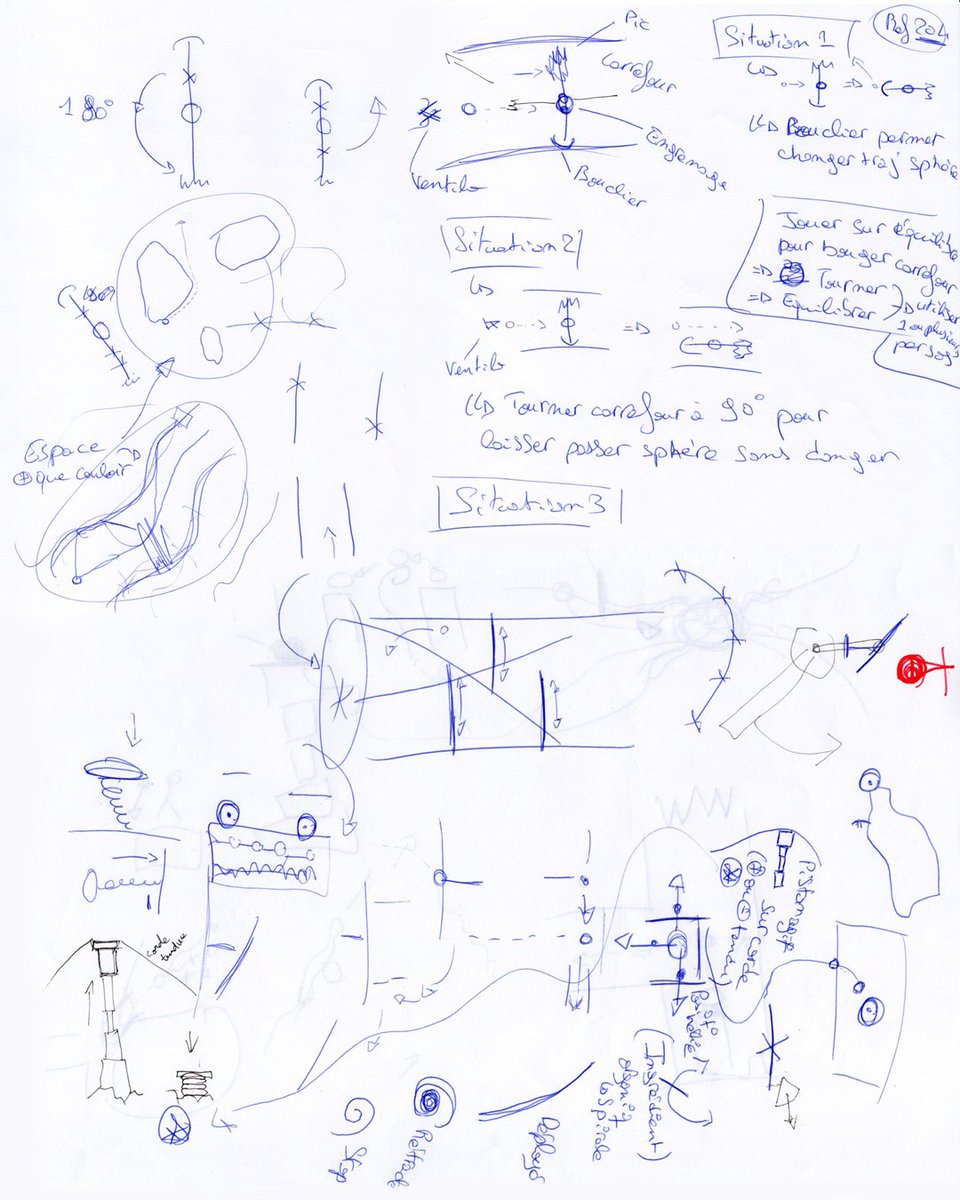 180°
Pic
Carrefour
Engrenage
Bouclier
Ventilo
Situation 1
Ref 204
Bouclier permet
changer traj sphère
Jouer sur équilibre
pour bouger carrefour
=> Tourner
=> Equilibrer
utiliser
1 ou plusieurs
persos
Situation 2
Ventilo
Tourner carrefour à 90° pour
laisser passer sphère sans danger
Espace
⊕ que couloir
Situation 3
corde
tendue
sur corde
(⊕ ou ⊖ tendu)
(Ingrédient
spirale
Stop
Rétracté
Déployé